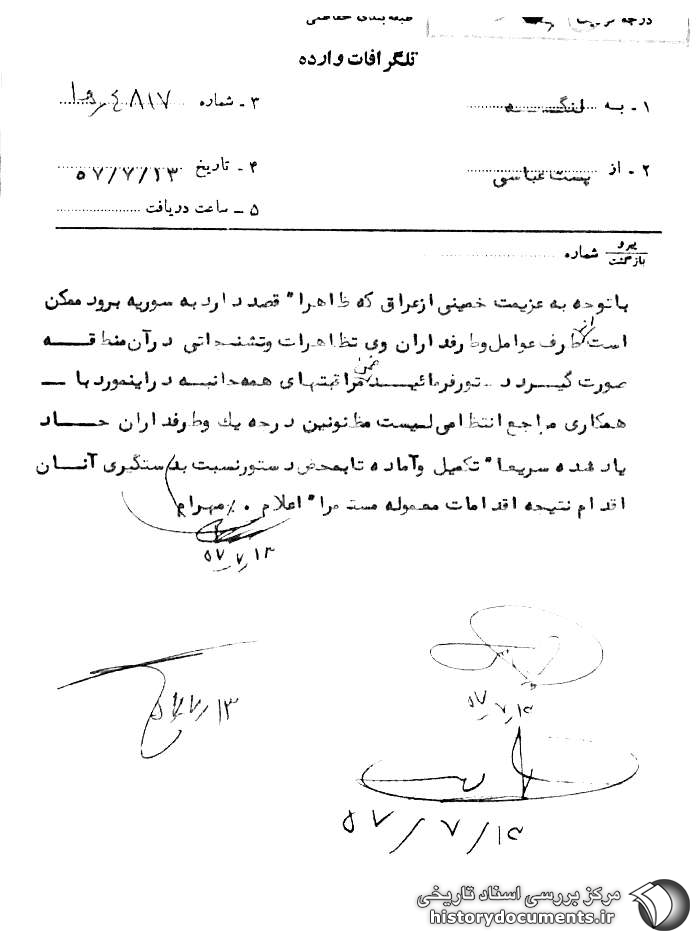 درجه
طبقه‌بندی حفاظتی
تلگرافات وارده
۱ - به لنگه
۳ - شماره ۴۸۱۷
۲ - از پست عباسی
۴ - تاریخ ۵۷/۷/۱۳
۵ - ساعت دریافت
پیرو
بازگشت
شماره
باتوجه به عزیمت خمینی ازعراق که ظاهرا" قصد دارد به سوریه برود ممکن
است از طرف عوامل وطرفداران وی تظاهرات وتشنجاتی درآن منطقه
صورت گیرد دستورفرمائید ضمن مراقبتهای همه جانبه دراینمورد با
همکاری مراجع انتظامی لیست مظنونین درجه یك وطرفداران حاد
یاد شده سریعا" تکمیل وآماده تابمحض دستورنسبت بدستگیری آنان
اقدام نتیجه اقدامات معموله مستمرا" اعلام ٠٪ مهرام
۵۷/۷/۱۳
۵۷/۷/۱۳
۵۷/۷/۱۳
۵۷/۷/۱۳
مرکز بررسی اسناد تاریخی
historydocuments.ir